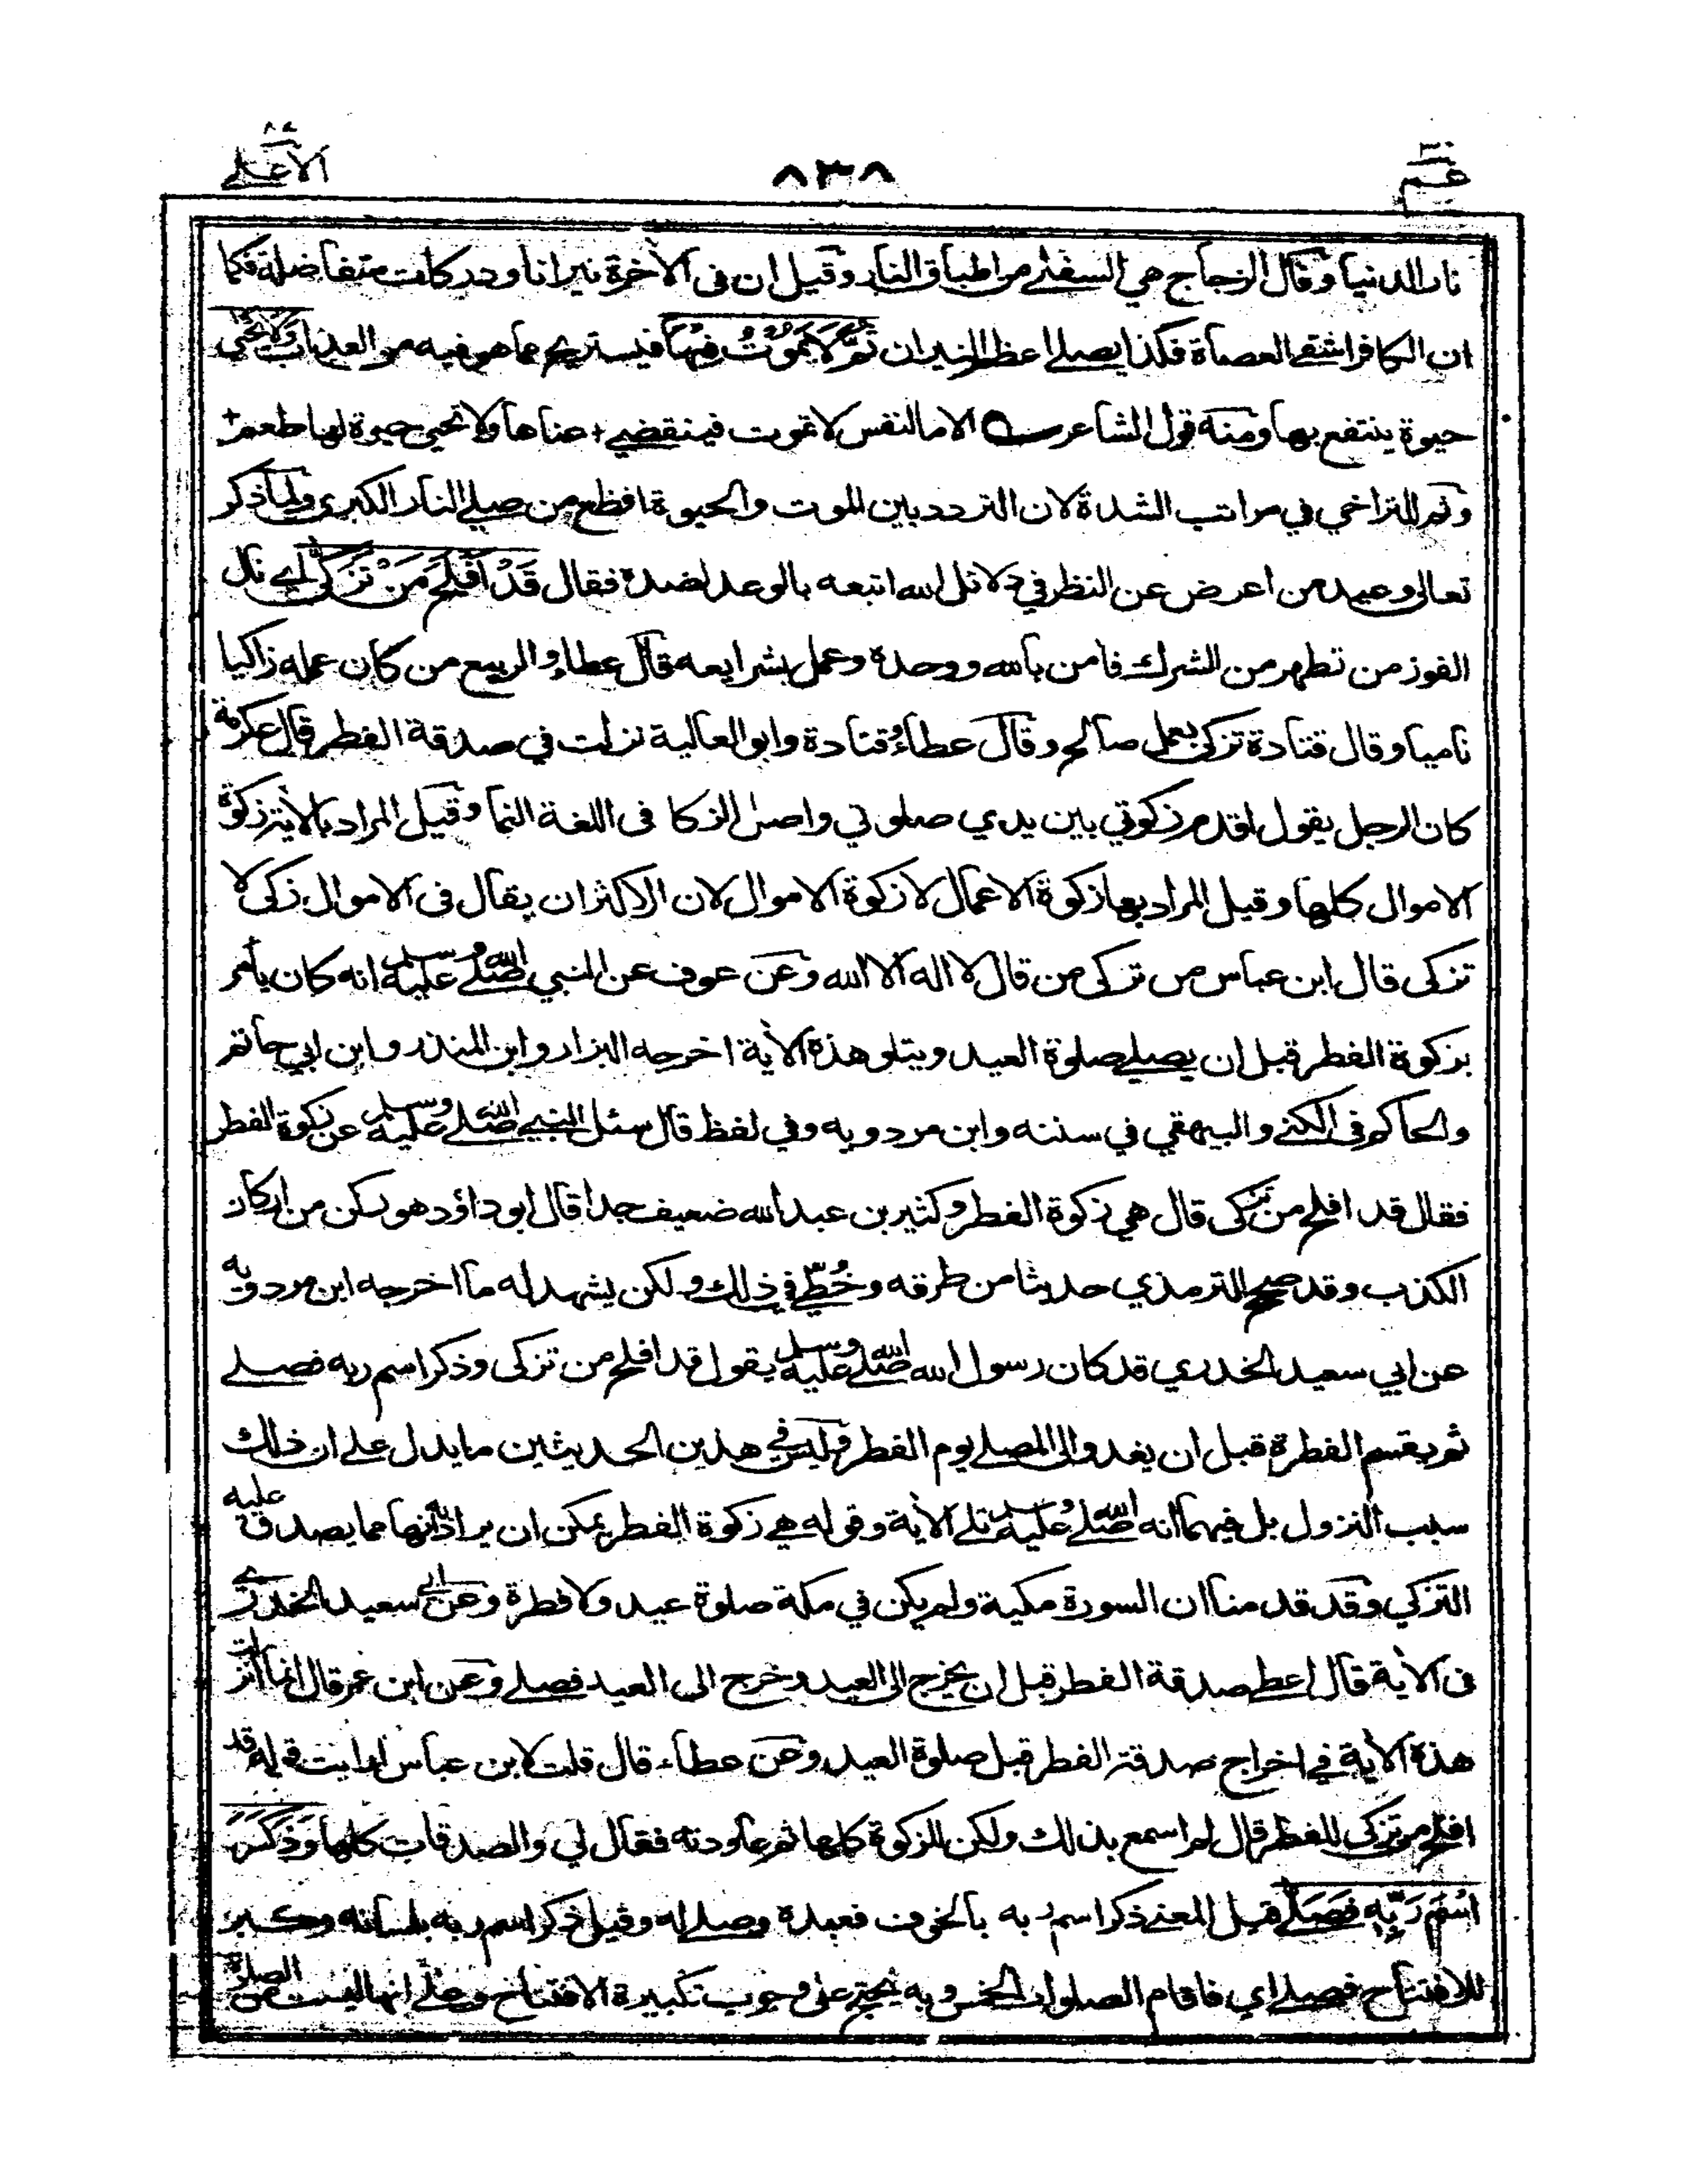 عم ٣٠
٨٣٨
الاعلى ٨٧
نار الدنيا وقال الزجاج هي السفلى من اطباق النار وقيل ان فى الاخرة نيرانا ودركات متفاضلة فكما
ان الكافر اشقى العصاة فكذا يصلى اعظم النيران ثُمَّ لَا يَمُوْتُ فِيْهَا فيستريح مما هو فيه من العذاب وَلَا يَحْيٰى
حيوة ينتفع بها ومنه قول الشاعر الا ما لنفس لا تموت فينقضي + عناها ولا تحيى حيوة لها طعم +
وثم للتراخي في مراتب الشدة لان التردد بين الموت والحيوة افظع من صلي النار الكبرى ولما ذكر
تعالى وعيد من اعرض عن النظر في دلائل الله اتبعه بالوعد لضده فقال قَدْ اَفْلَحَ مَنْ تَزَكّٰى اي نال
الفوز من تطهر من الشرك فامن بالله ووحده وعمل بشرايعه قال عطاء والربيع من كان عمله زاكيا
ناميا وقال قتادة تزكى بعمل صالح وقال عطاء وقتادة وابو العالية نزلت في صدقة الفطر قال عكرمة
كان الرجل يقول اقدم زكوتي بين يدي صلوتي واصل الزكا فى اللغة النما وقيل المراد بالاية زكوة
الاموال كلها وقيل المراد بها زكوة الاعمال لا زكوة الاموال لان الاكثر ان يقال فى الاموال زكى لا
تزكى قال ابن عباس من تزكى من قال لا اله الا الله وعن عوف عن النبي صلى الله عليه وسلم انه كان يأمر
بزكوة الفطر قبل ان يصلى صلوة العيد ويتلو هذه الاية اخرجه البزار وابن المنذر وابن ابي حاتم
والحاكم فى الكنى والبيهقي في سننه وابن مردويه وفي لفظ قال سئل النبي صلى الله عليه وسلم عن زكوة الفطر
فقال قد افلح من تزكى قال هي زكوة الفطر وكثير بن عبد الله ضعيف جدا قال ابو داؤد هو ركن من اركان
الكذب وقد صحح الترمذي حديثا من طرقه وخُطّئ في ذلك ولكن يشهد له ما اخرجه ابن مردويه
عن ابي سعيد الخدري قد كان رسول الله صلى الله عليه وسلم يقول قد افلح من تزكى وذكر اسم ربه فصلى
ثم يقسم الفطرة قبل ان يغدو الى المصلى يوم الفطر وليس في هذين الحديثين ما يدل على ان ذلك
سبب النزول بل فيهما انه صلى الله عليه وسلم تلى الاية وقوله هي زكوة الفطر يمكن ان يراد به انها مما يصدق عليه
التزكي وقد قدمنا ان السورة مكية ولم يكن في مكة صلوة عيد ولا فطرة وعن ابي سعيد الخدري
فى الاية قال اعطى صدقة الفطر قبل ان يخرج الى العيد وخرج الى العيد فصلى وعن ابن عمر قال انما انزلت
هذه الاية في اخراج صدقة الفطر قبل صلوة العيد وعن عطاء قال قلت لابن عباس ارايت قوله قد
افلح من تزكى للفطر قال لم اسمع بذلك ولكن للزكوة كلها ثم عاودته فقال لي والصدقات كلها وَذَكَرَ
اسْمَ رَبِّهٖ فَصَلّٰى قيل المعنى ذكر اسم ربه بالخوف فعبده وصلى له وقيل ذكر اسم ربه بلسانه وكبر
للافتتاح فصلى اي فاقام الصلوات الخمس وبه يحتج على وجوب تكبيرة الافتتاح وعلى انها ليست من الصلوة